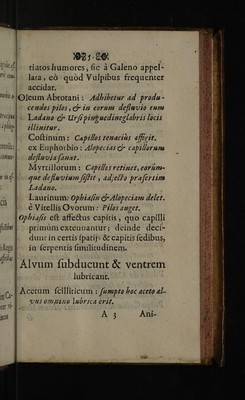 5
tiatos humores, sic à Galeno appel-
lata, eò quòd Vulpibus frequenter
accidat.
Oleum Abrotani : Adhibetur ad produ-
cendos pilos, & in eorum defluvio cum
Ladano & Ursi pinguedine glabris locis
illinitur.
Costinum : Capillos tenacius affigit.
ex Euphorbio : Alopecias & capillorum
defluvia sanat.
Myrtillorum : Capillos retinet, eorúm-
que defluvium sistit, adjecto præsertim
Ladano.
Laurinum : Ophiasin & Alopeciam delet.
è Vitellis Ovorum : Pilos auget.
Ophiasis est affectus capitis, quo capilli
primùm extenuantur; deinde deci-
dunt in certis spatijs & capitis sedibus,
in serpentis similitudinem.
Alvum subducunt & ventrem
lubricant.
Acetum scilliticum : sumpto hoc aceto al-
vus omnino lubrica erit.
A 3 Ani-